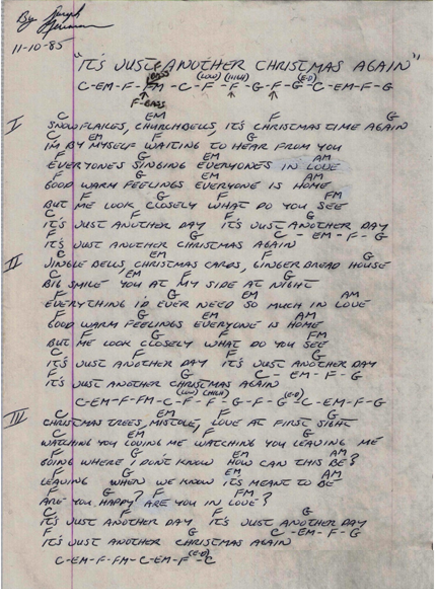 By Joseph
11-10-85
"IT'S JUST ANOTHER CHRISTMAS AGAIN"
BASS
(LOW) (HIGH) (E-D)
C-EM-F-FM-C-F-F-G-F-G-C-EM-F-G
F-BASS
I
C EM F G
SNOWFLAKES, CHURCHBELLS, IT'S CHRISTMAS TIME AGAIN
C EM F G
IM BY MYSELF WAITING TO HEAR FROM YOU
F G EM AM
EVERYONE'S SINGING EVERYONE'S IN LOVE
F G EM AM
GOOD WARM FEELINGS EVERYONE IS HOME
F G F FM
BUT ME LOOK CLOSELY WHAT DO YOU SEE
C F F G
IT'S JUST ANOTHER DAY IT'S JUST ANOTHER DAY
F G C - EM - F - G
IT'S JUST ANOTHER CHRISTMAS AGAIN
II
C EM F G
JINGLE BELLS, CHRISTMAS CARDS, GINGER BREAD HOUSE
C EM F G
BIG SMILE YOU AT MY SIDE AT NIGHT
F G EM AM
EVERYTHING I'D EVER NEED SO MUCH IN LOVE
F G EM AM
GOOD WARM FEELINGS EVERYONE IS HOME
F G F FM
BUT ME LOOK CLOSELY WHAT DO YOU SEE
C F F G
IT'S JUST ANOTHER DAY IT'S JUST ANOTHER DAY
F G C - EM - F - G
IT'S JUST ANOTHER CHRISTMAS AGAIN
(LOW) (HIGH) (E-D)
C-EM-F-FM-C-F-F-G-F-G-C-EM-F-G
III
C EM F G
CHRISTMAS TREES, MISTLOE, LOVE AT FIRST SIGHT
C EM F G
WATCHING YOU LOVING ME WATCHING YOU LEAVING ME
F G EM AM
GOING WHERE I DON'T KNOW HOW CAN THIS BE?
F G EM AM
LEAVING WHEN WE KNOW IT'S MEANT TO BE
F G F FM
ARE YOU HAPPY? ARE YOU IN LOVE?
C F F G
IT'S JUST ANOTHER DAY IT'S JUST ANOTHER DAY
F G C - EM - F - G
IT'S JUST ANOTHER CHRISTMAS AGAIN
(E-D)
C-EM-F-FM-C-EM-F-C